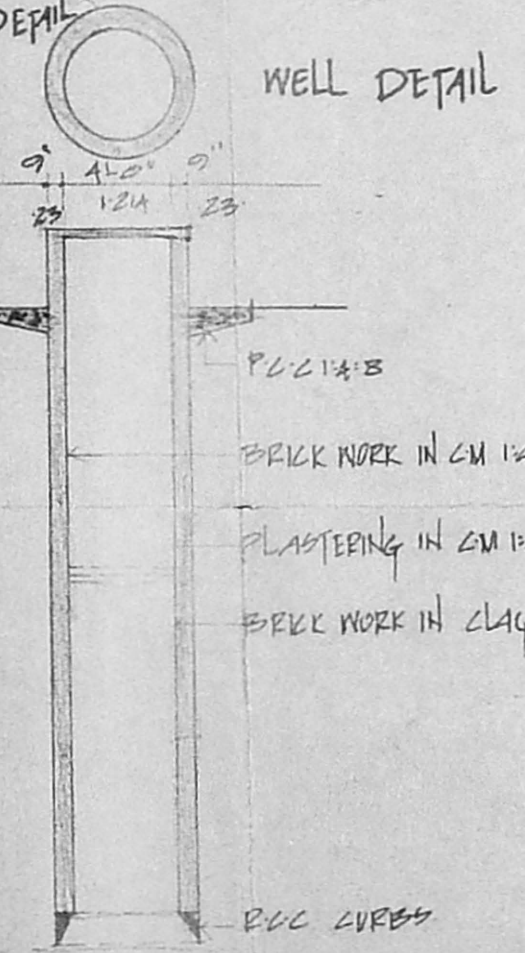 DETAIL
WELL DETAIL
9" 4'-0" 9"
.23 1.214 .23
P.C.C 1:4:8
BRICK WORK IN C.M
PLASTERING IN C.M
BRICK WORK IN CLAY
R.C.C CURBS